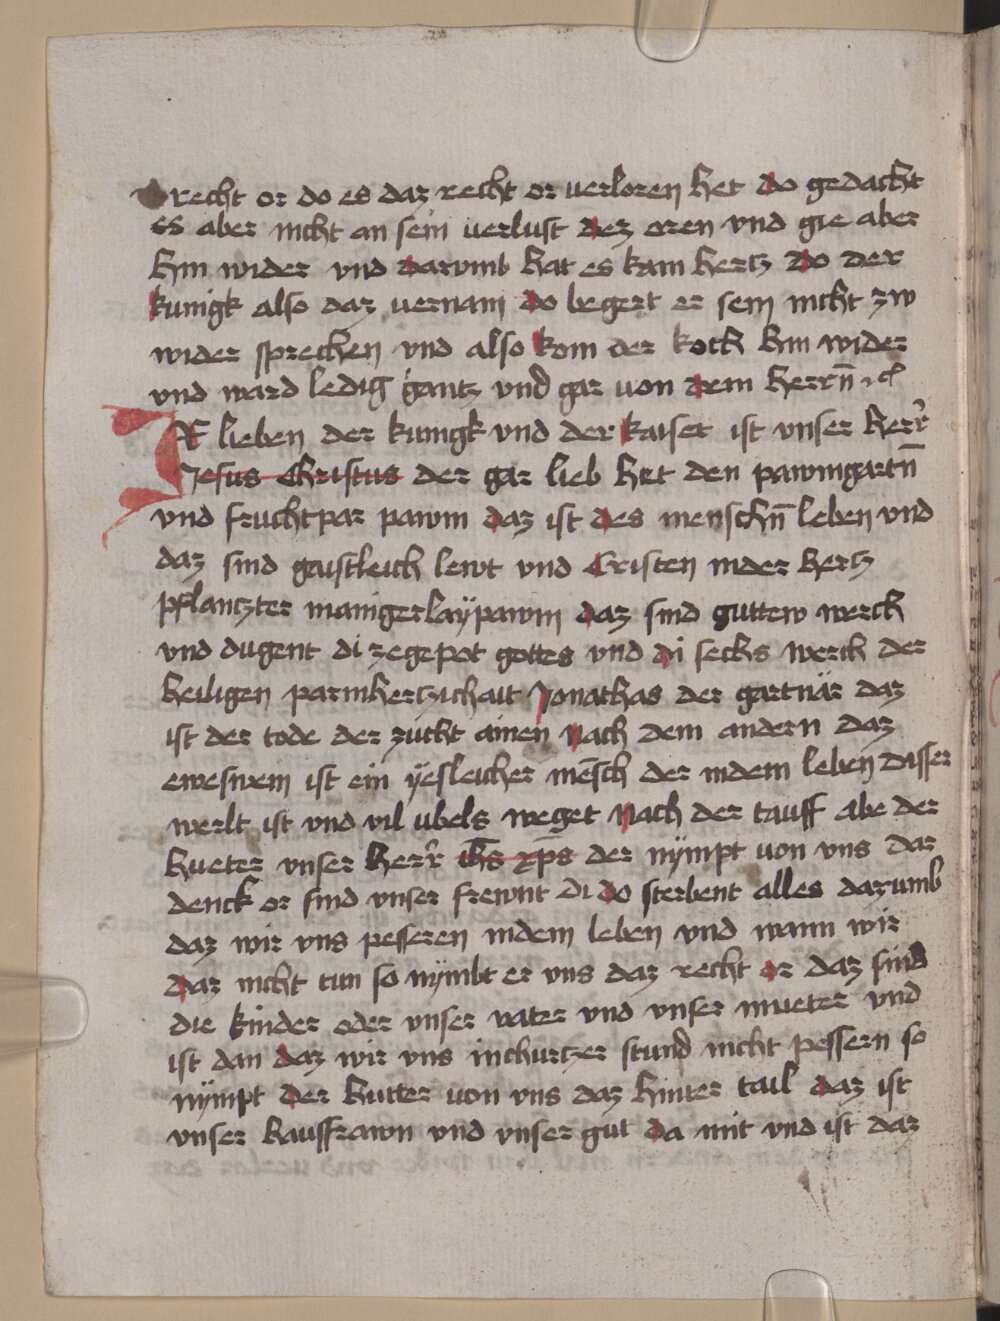 recht or do es daz recht or verloren het do gedacht
es aber nicht an sein verlust dez oren vnd gie aber
hin wider vnd darvmb hat es kain hertz do der
kunigk also daz vernam do begert er sein nicht zw
wider sprechen vnd also kom der koch hin wider
vnd ward ledig gantz vnd gar von dem herrn̄ ⁊c̄
Ir lieben der kunigk vnd der kaiser ist vnser herr̄
Jesus Christus der gar lieb het den pawmgartn̄
vnd fruchtpar pawm daz ist des menschn̄ leben vnd
daz sind gaistleich lewt vnd Cristen inder hertz
pflantzter manigerlaÿ pawm daz sind guttew werch
vnd dugent di zegepot gottes vnd di sechs werch der
heiligen parmhertzichait Jonathas der gartnär daz
ist der tode der zucht ainen nach dem andern daz
ist ein ÿesleicher mēsch der indem leben disser
werlt ist vnd vil vbels weget nach der tauff abe der
hueter vnser herr̄ ihs xps der nÿmpt von vns daz
denck or sind vnser frewnt di do sterbent alles darumb
daz wir vns pesseren indem leben vnd wann wir
daz nicht tun so nÿmbt er vns daz recht or daz sind
die kinder oder vnser vater vnd vnser mueter vnd
ist dan daz wir vns inchurtzer stund nicht pessern so
nÿmpt der hutter von vns daz hinter tail daz ist
vnser hausfrawn vnd vnser gut da mit vnd ist daz